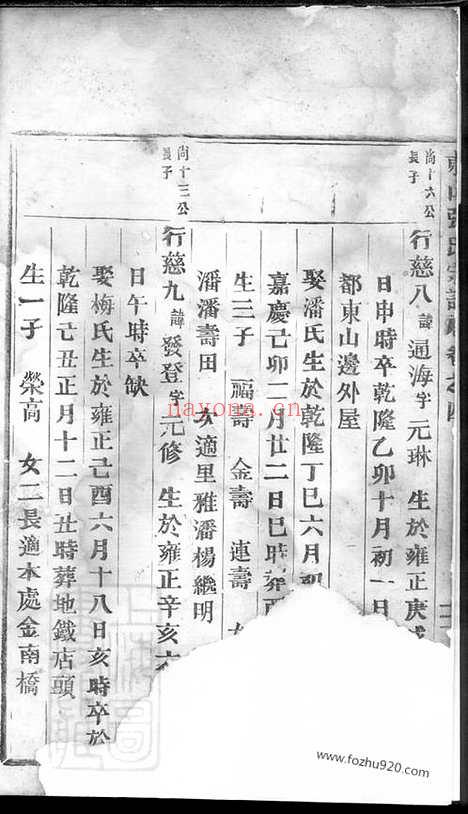 尚十六公
長子
行慈八諱通海字元琳 生於雍正庚戌
日申時卒乾隆乙卯十月初一日
都東山邊外屋
娶潘氏生於乾隆丁巳六月初
嘉慶己卯二月廿二日巳時葬
生三子 福壽 金壽 連壽 女
潘潘壽田 女適里雅潘楊繼明
尚十三公
長子
行慈九諱發登字元修 生於雍正辛亥六
日午時卒缺
娶梅氏生於雍正己酉六月十八日亥時卒於
乾隆己丑正月十二日丑時葬地鐵店頭
生一子 榮高 女二長適本處金南橋
nayona.cn
www.fozhu920.com